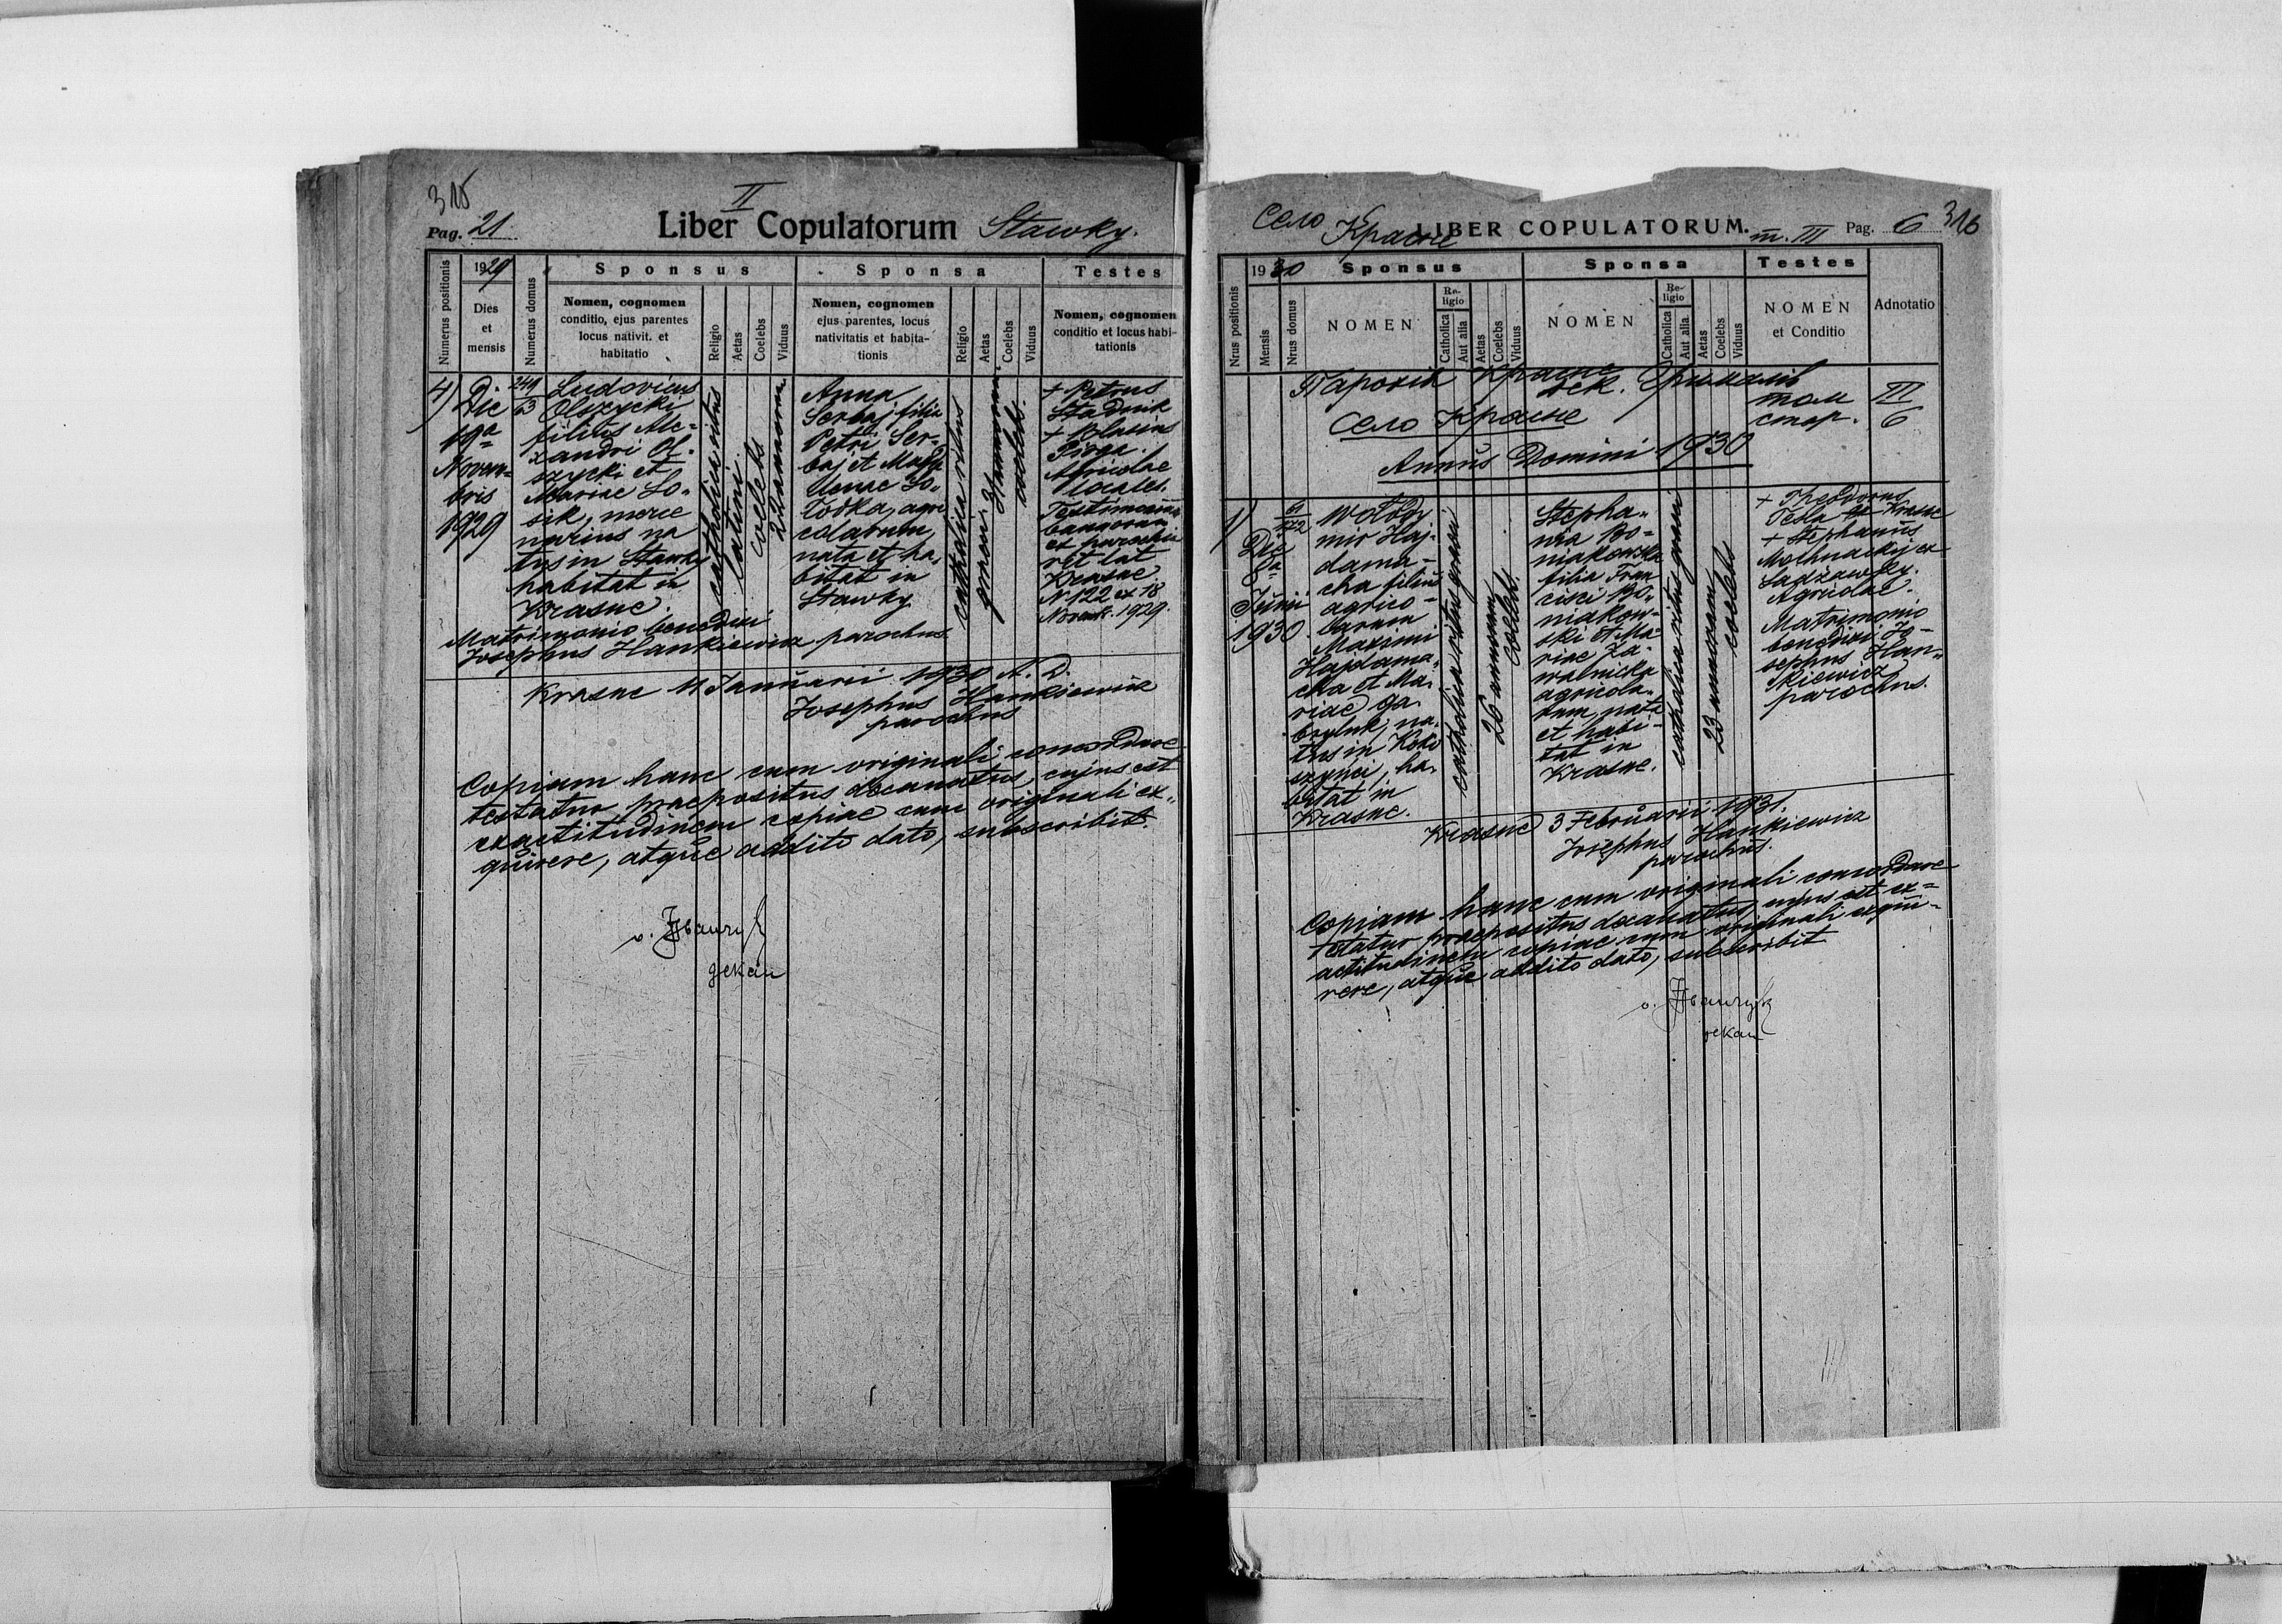 315
II
Pag. 21 Liber Copulatorum Stawky.
Numerus positionis
1929
Dies et mensis
Numerus domus
Sponsus
Nomen, cognomen
conditio, ejus parentes
locus nativit. et
habitatio
Religio
Aetas
Coelebs
Viduus
Sponsa
Nomen, cognomen
ejus parentes, locus
nativitatis et habita-
tionis
Religio
Aetas
Coelebs
Viduus
Testes
Nomen, cognomen
conditio et locus habi-
tationis
4)
Die
19a
Novem-
bris
1929
249
63
Ludovicus
Olszycki
filius Ale-
xandri Ol-
szycki et
Mariae So-
sik, merce
narius na
tus in Stawky
habitat in
Krasne.
catholica ritus
latini.
coelebs
annorum
Anna
Serbaj filia
Petri Ser-
baj et Magda
lenae So-
lotka, agri
colarum,
nata et ha-
bitat in
Stawky
catholica ritus
graeci. 31 annorum
coelebs.
+ Petrus
Stadnik
+ Blasius
Piroga.
Agricolae
locales.
Testimonium
bannorum
ex parochia
rit lat
Krasne
N 122 ex 18
Novemb. 1929.
Matrimonio benedixi
Josephus Hankiewicz parochus.
Krasne 11 Januarii 1930 A. D.
Josephus Hankiewicz
parochus
Copiam hanc cum originali concordare
testatur praepositus decanatus, cujus est
exactitudinem copiae cum originali ex-
quirere, atque addito dato, subscribit.
декан
Село Красне LIBER COPULATORUM. т. III Pag. 6 316
Nrus positionis
1930
Mensis
Nrus domus
Sponsus
NOMEN
Re-
ligio
Catholica
Aut alia
Aetas
Coelebs
Viduus
Sponsa
NOMEN
Re-
ligio
Catholica
Aut alia
Aetas
Coelebs
Viduus
Testes
NOMEN
et Conditio
Adnotatio
Парохія Красне
дек. Грималів
Село Красне
том III
стор. 6
Annus Domini 1930
1)
Die
Junii
1930.
61
172
Wolody
mir Haj-
dama-
cha filius
agrico-
larum
Maximi
Hajdama-
cha et Ma-
riae Ga-
bryluk, na-
tus in Koko
szynci, ha-
bitat in
Krasne.
catholica ritus graeci
26 annorum
coelebs.
Stepha-
nia Bo-
niakowska
filia Fran
cisci Bo-
niakow-
ski et Ma-
riae Za-
walnicka
agricola-
rum, nata
et habi-
tat in
Krasne.
catholica ritus graeci
23 annorum
coelebs
+ Theodorus
Tesla Krasne
+ Stephanus
Molhnackyj ex
Sadzawky.
Agricolae.
Matrimonio
benedixi Jo-
sephus Han-
kiewicz
parochus.
Krasne 3 Februarii 1931.
Josephus Hankiewicz
parochus.
Copiam hanc cum originali concordare
testatur praepositus decanatus, cujus est ex-
actitudinem copiae cum originali exqui-
rere, atque addito dato, subscribit
декан